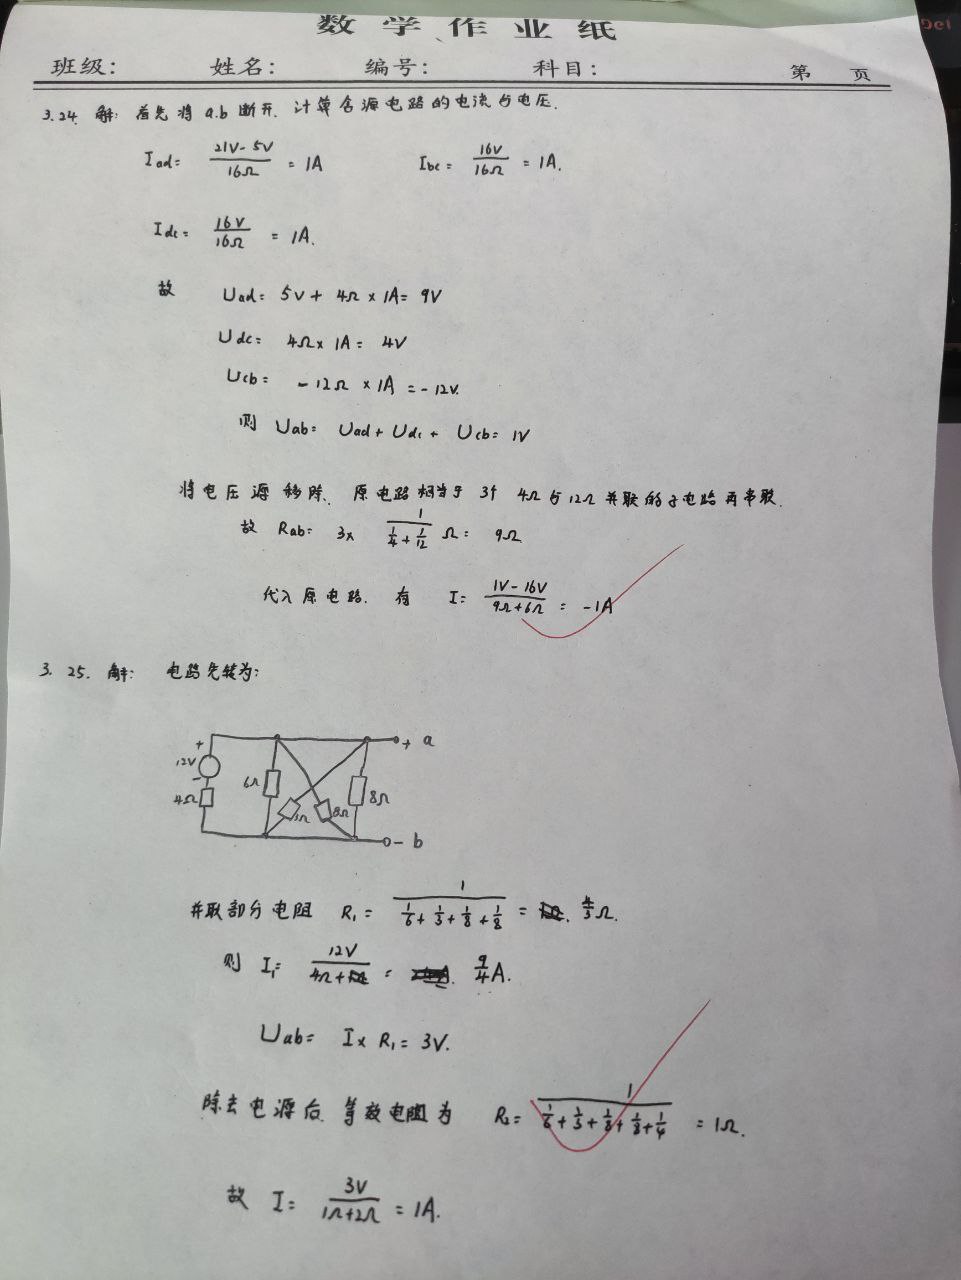 数学作业纸
班级： 姓名： 编号： 科目： 第 页
3.24. 解: 首先将 a.b 断开. 计算含源电路的电流与电压.
Iad= 21V-5V/16Ω = 1A Ibc= 16V/16Ω = 1A.
Idc= 16V/16Ω = 1A.
故 Uad= 5V+ 4Ω×1A= 9V
Udc= 4Ω× 1A= 4V
Ucb= -12Ω ×1A =-12V.
则 Uab= Uad+ Udc+ Ucb= 1V
将电压源移除. 原电路相当于 3个 4Ω与12Ω 并联的子电路再串联.
故 Rab= 3× 1/(1/4+1/12) Ω= 9Ω
代入原电路. 有 I= 1V-16V/9Ω+6Ω = -1A
3. 25. 解: 电路先转为:
+ a
12V
+
-
4Ω 6Ω 3Ω 8Ω 8Ω
- b
并联部分电阻 R₁= 1/(1/6+1/3+1/8+1/8) = 4/3Ω.
则 I₁= 12V/4Ω+ = 9/4A.
Uab= I× R₁= 3V.
除去电源后. 等效电阻为 R₂= 1/(1/6+1/3+1/8+1/8+1/4) =1Ω.
故 I= 3V/1Ω+2Ω = 1A.